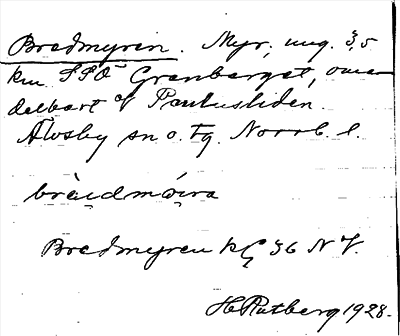 Bredmyren. Myr, ung. 3,5
km SSO Granberget, ome-
delbart Ö Paulusliden.
Älvsby sn o. tg. Norrb. l.
Bredmyren kG 36 NV.
H Rutberg 1928.